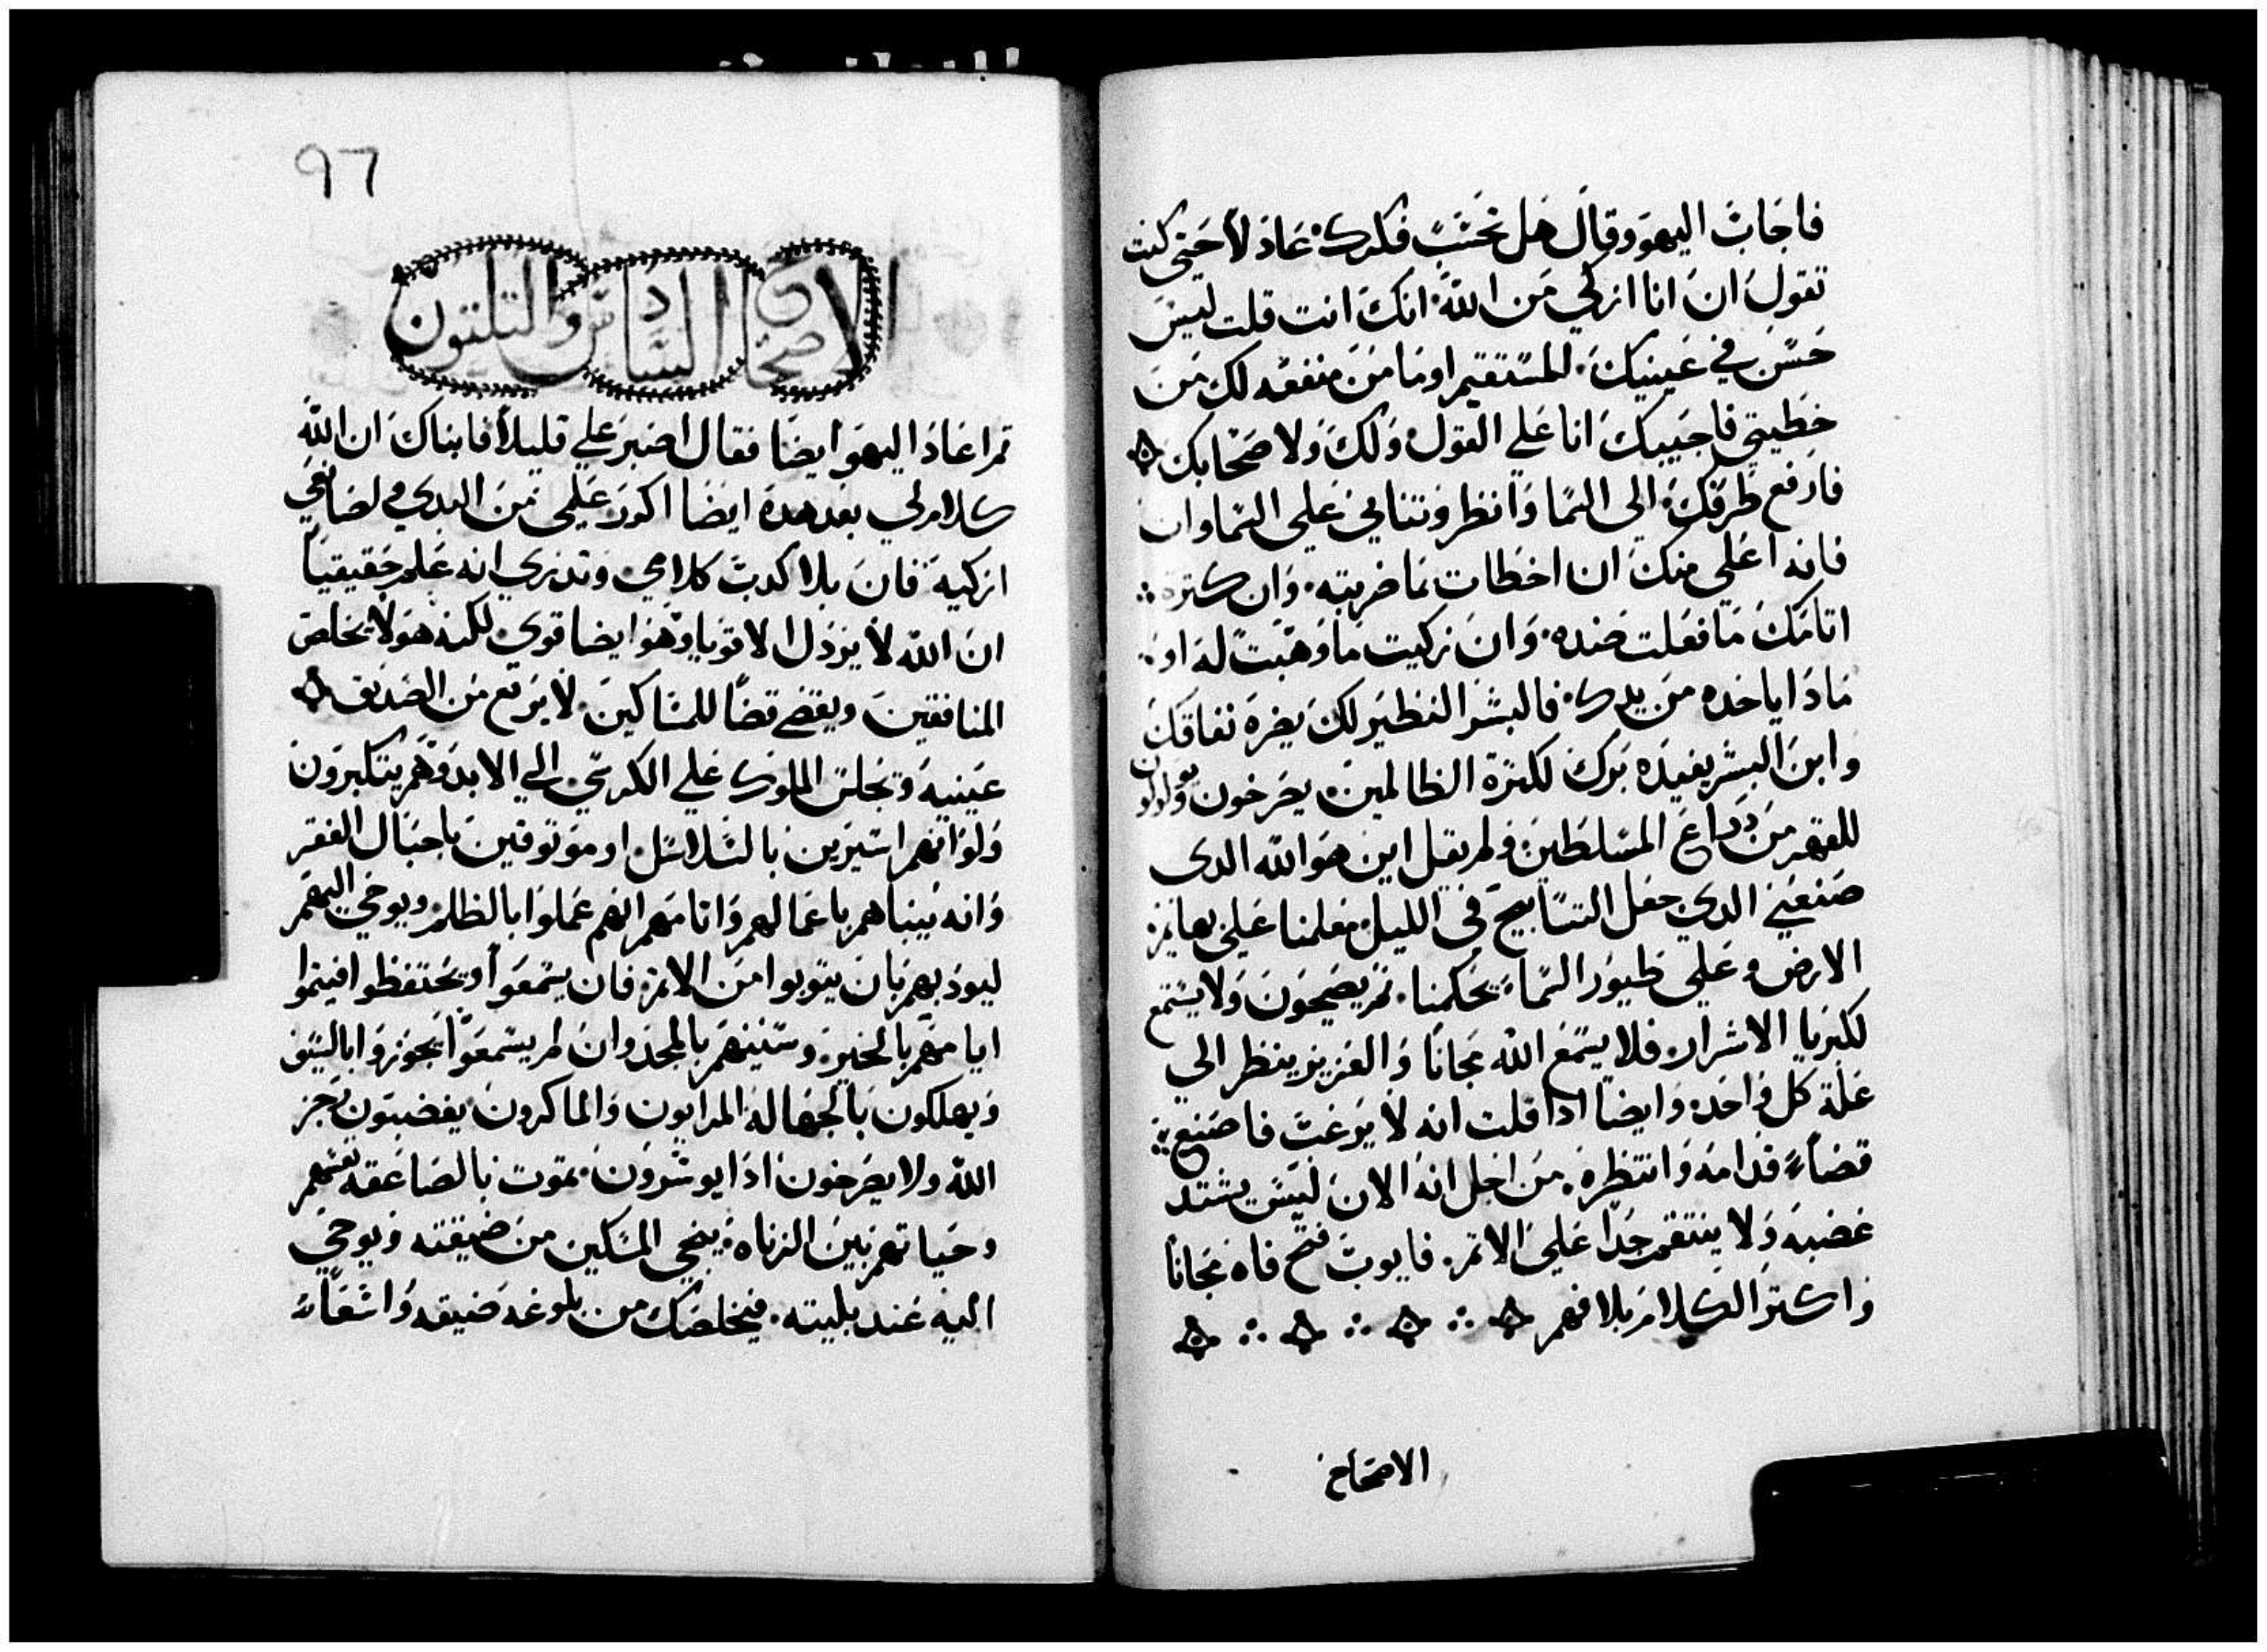 فاجاب اليهود وقال هل تحتسب فكرك عادلاً حتى كنت
تقول ان انا ازكي من الله انك انت قلت ليس
حسن في عينيك المستقيم او ما من منفعه لك من
خطيتي فاجيبك انا علي القول ولك ولاصحابك
فارفع طرفك الي السما وانظر وتتامي علي السماوات
فانه اعلي منك ان اخطات بما ضربته وان كترة
اتامك ما فعلت ضده وان زكيت ما وهبت له او
مادا ياخده من يدك فالبشر النظير لك يضره نفاقك
وابن البشر يفيده برك لكترة الظالمين يصرخون ويولولون
للقهر من دراع المسلطين ولم يقل اين هو الله الدى
صنعني الدي جعل التسابيح في الليل معلمنا علي بهايم
الارض وعلي طيور السما يحكمنا تم يصيحون ولا يستمع
لكبريا الاشرار فلا يسمع الله مجانا والعزيز ينظر الي
علة كل واحده وايضا ادا قلت انه لا يوغت فاصنع
قضاء قدامه وانتظره من اجل انه الان ليس يشتد
غضبه ولا ينتقم جدا علي الاتم فايوب فتح فاه مجانا
واكتر الكلام بلا فهم
الاصحاح
٩٦
الاصحاح السادس والتلتون
تم اعاد اليهو ايضا فقال اصبر علي قليلا فانباك ان الله
كلام لي بعد هده ايضا اكون علمي من البدي وصانعي
ازكيه فان بلا كدب كلامي وتدري انه علم حقيقيا
ان الله لا يردل الاقويا وهو ايضا قوي لكنه هو لا يخلص
المنافقين ويقضي قضا للمساكين لا يرفع من الصديق
عينيه وتجلس الملوك علي الكرسي الي الابد وهم يتكبرون
ولو انهم اسيرين بالسلاسل او موتوقين باحبال الفقر
وانه ينباهم باعمالهم واتامهم انهم عملوا بالظلم ويوحي اليهم
ليودبهم بان يتوبوا من الاتم فان يسمعوا ويحتفظوا فيتموا
ايامهم بالخير وسنينهم بالمجد وان لم يسمعوا يجوزوا بالسيف
ويهلكون بالجهاله المرايون والماكرون يغضبون رجز
الله ولا يصرخون ادا يوسرون تموت بالصاعقه نفسهم
وحياتهم بين الزناه ينجي المسكين من ضيقته ويوحي
اليه عند بليته فيخلصك من بلوغه ضيقه واسعاء